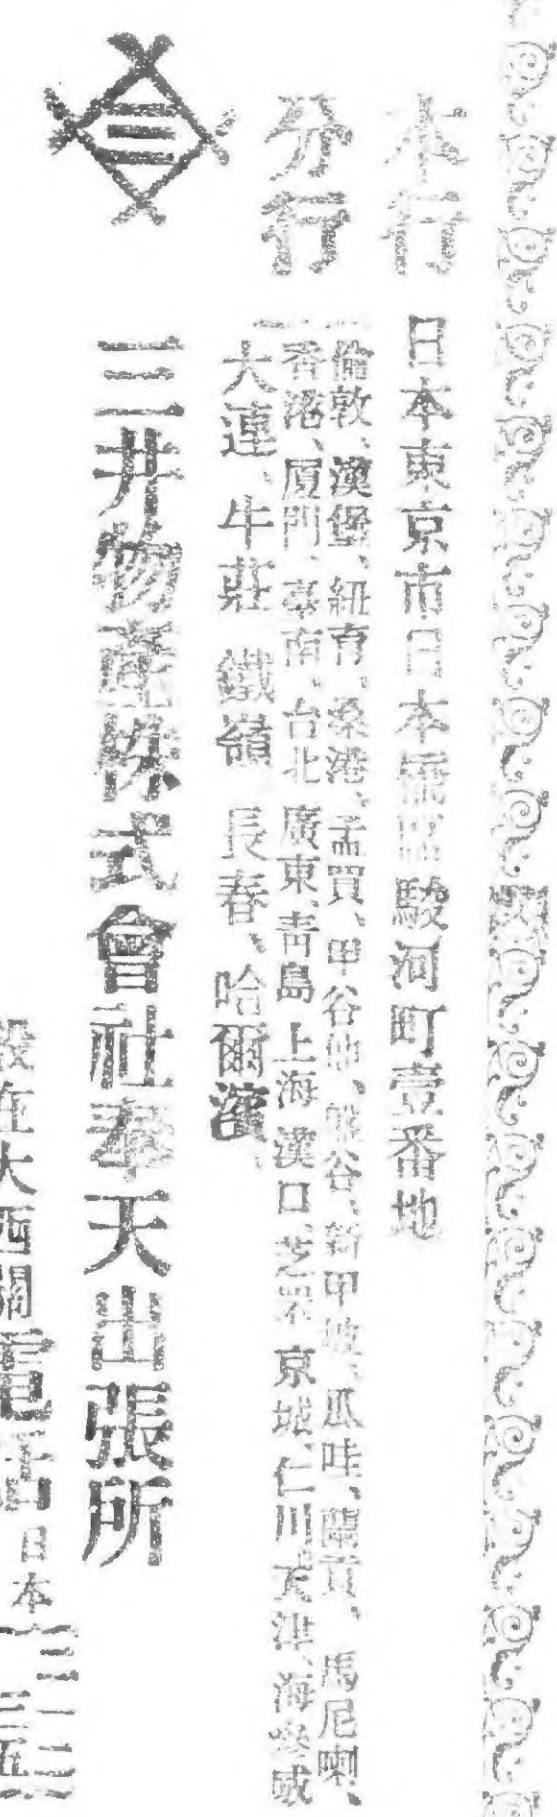 本行　日本東京市日本橋區駿河町壹番地
分行
倫敦、漢堡、紐育、桑港、孟買、甲谷他、盤谷、新甲坡、瓜哇、蘭貢、馬尼喇、
香港、厦門、臺南、台北　廣東、青島　上海　漢口　芝罘　京城、仁川　天津、海參威
大連、牛莊　鐵嶺　長春、哈爾濱、
三井物產株式會社奉天出張所
設在大西關電話日本